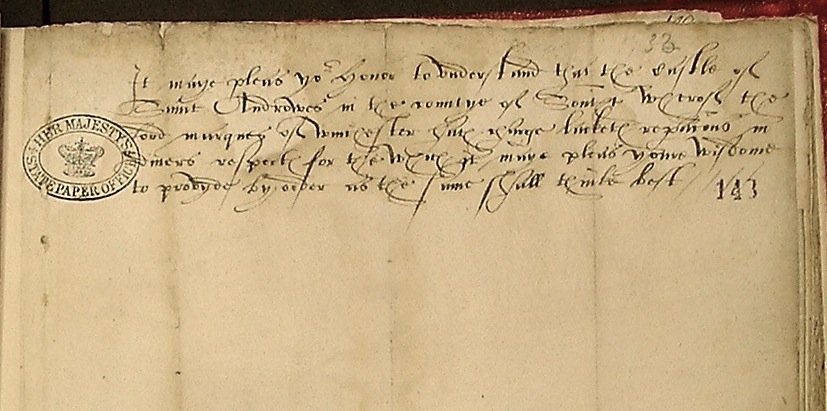 33
It maye pleas yor honor to understand that the castle of
Saint Androwes in the countye of South wherof the
lord marques of winchester hath charge lacketh repacions in
divers respects for the which it maye pleas youre wisdome
to provyde by order as the same shall thinke best
143
HER MAJESTY'S
STATE PAPER OFFICE